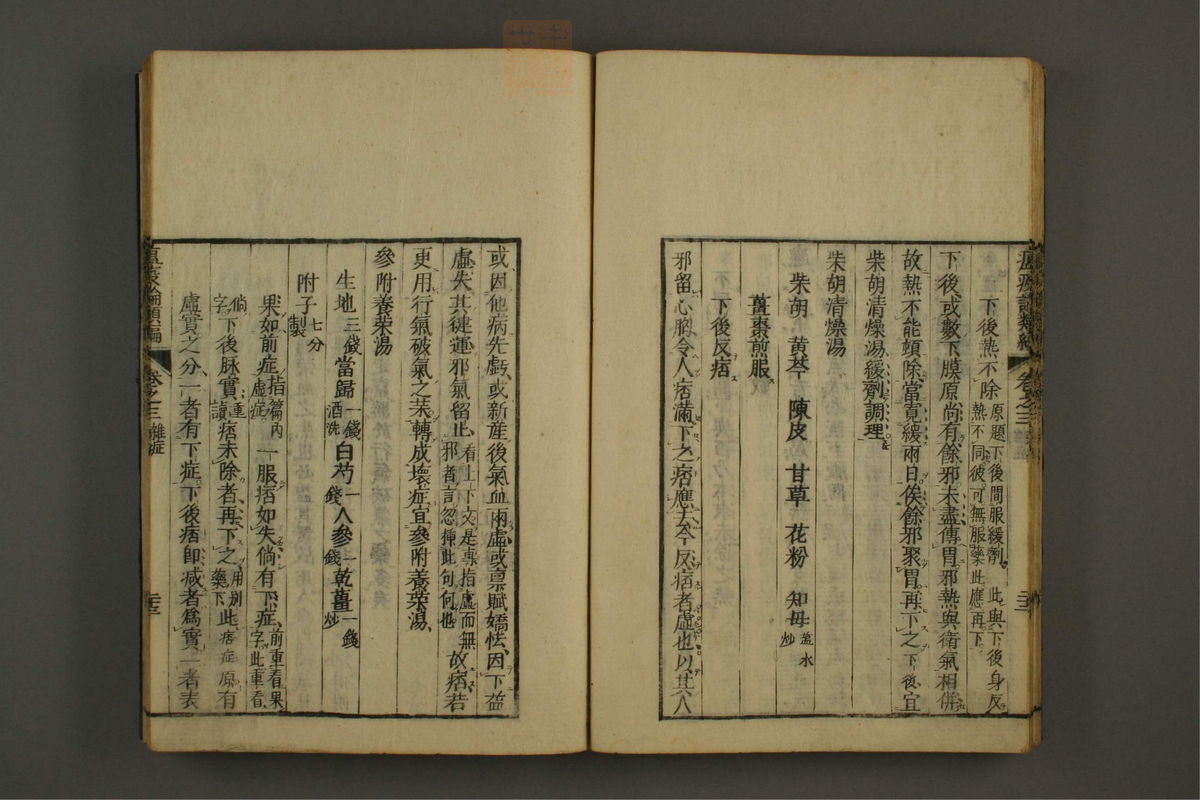 瘟疫論類編 卷之三 雜症 二十二
下後熱不除 原題下後間服緩劑 此與下後身反熱不同彼可無服藥此應再下
下後或數下膜原尚有餘邪未盡傳胃邪熱與衛氣相併
故熱不能頓除當寬緩兩日俟餘邪聚胃再下之下後宜
柴胡清燥湯緩劑調理
柴胡清燥湯
柴胡 黃芩 陳皮 甘草 花粉 知母 鹽水炒
薑棗煎服
下後反痞
邪留心胸令人痞滿下之痞應去今反痞者虛也以其人
或因他病先虧或新產後氣血兩虛或禀賦嬌怯因下益
虛失其徤運邪氣留止 看上下文是專指虛而無邪者言忽揷此句何也 故痞若
更用行氣破氣之藥轉成壞症宜參附養荣湯
參附養荣湯
生地 三錢 當歸 一錢酒洗 白芍 一錢 人參 一錢 乾薑 一錢炒
附子 七分製
果如前症 指篇內虛症 一服痞如失倘有下症 前重看果字此重看倘字
下後脉實 重讀 痞未除者再下之 用別藥下 此 痞症原有
虛實之分一者有下症下後痞卽减者爲實一者表
瘟疫論類編 卷之三 雜症 二十三